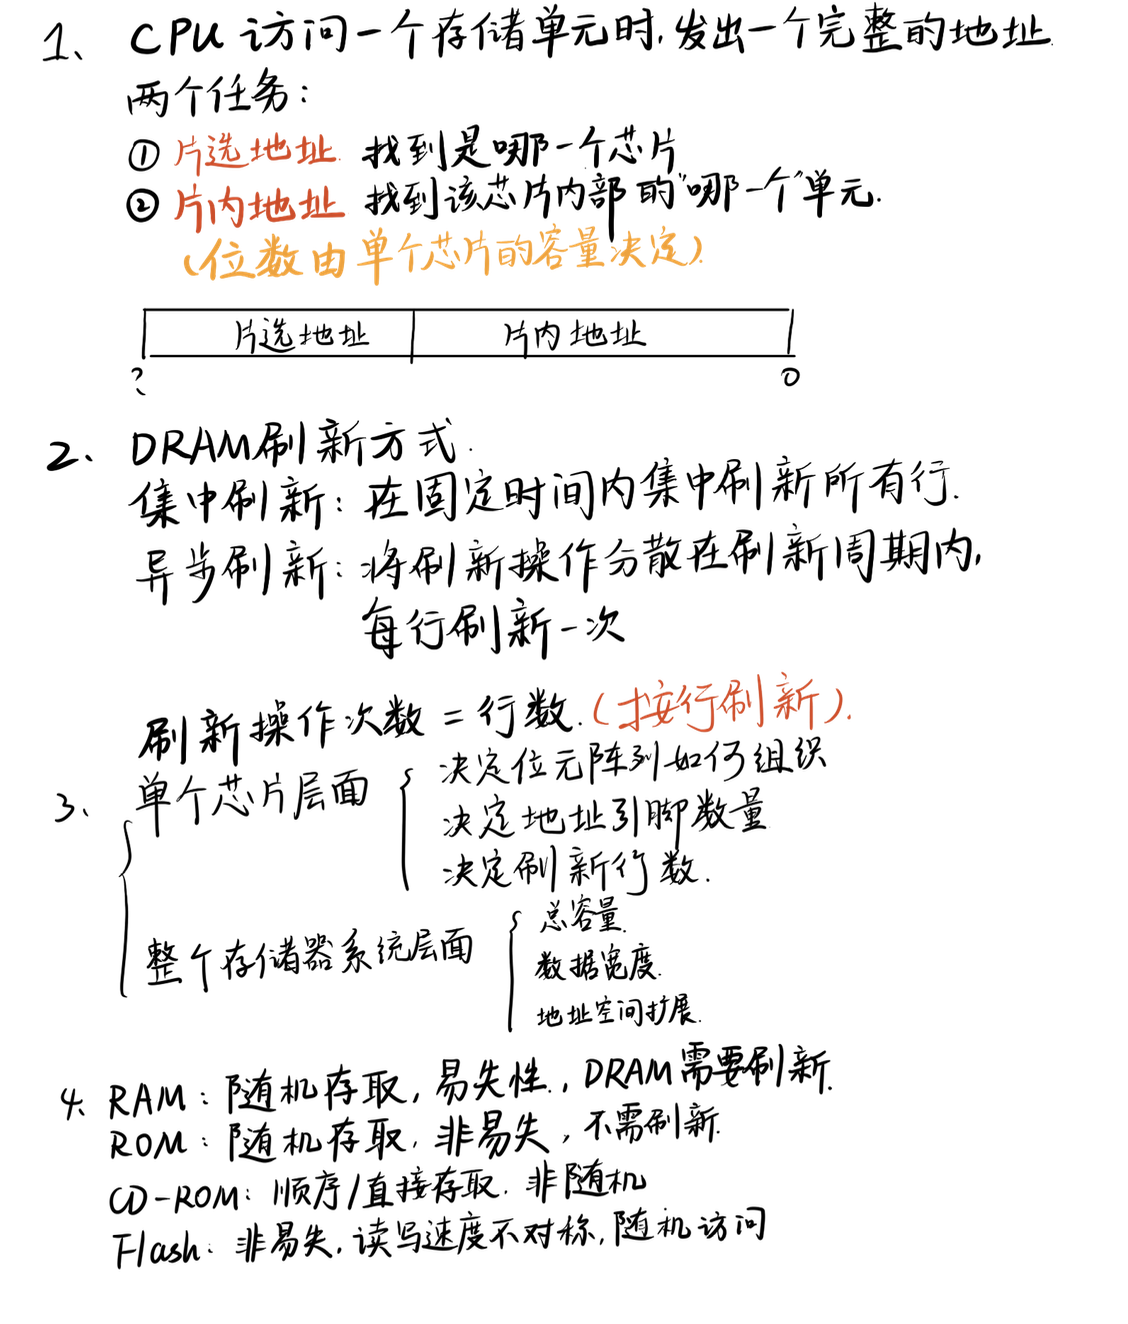 1、 CPU 访问一个存储单元时,发出一个完整的地址.
两个任务:
① 片选地址. 找到是哪一个芯片
② 片内地址 找到该芯片内部的"哪一个"单元.
(位数由单个芯片的容量决定).
片选地址 片内地址
? 0
2、 DRAM刷新方式.
集中刷新: 在固定时间内集中刷新所有行.
异步刷新: 将刷新操作分散在刷新周期内,
每行刷新一次
刷新操作次数 = 行数. (按行刷新).
3、 单个芯片层面
决定位元阵列如何组织
决定地址引脚数量
决定刷新行数.
整个存储器系统层面
总容量.
数据宽度.
地址空间扩展.
4、 RAM: 随机存取, 易失性., DRAM需要刷新.
ROM: 随机存取, 非易失, 不需刷新.
CD-ROM: 顺序/直接存取. 非随机
Flash: 非易失, 读写速度不对称, 随机访问